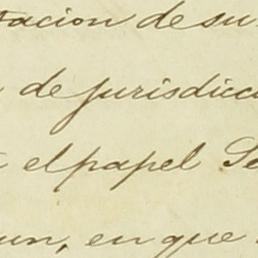 tacion de su
de jurisdicc
el papel Se
un, en que